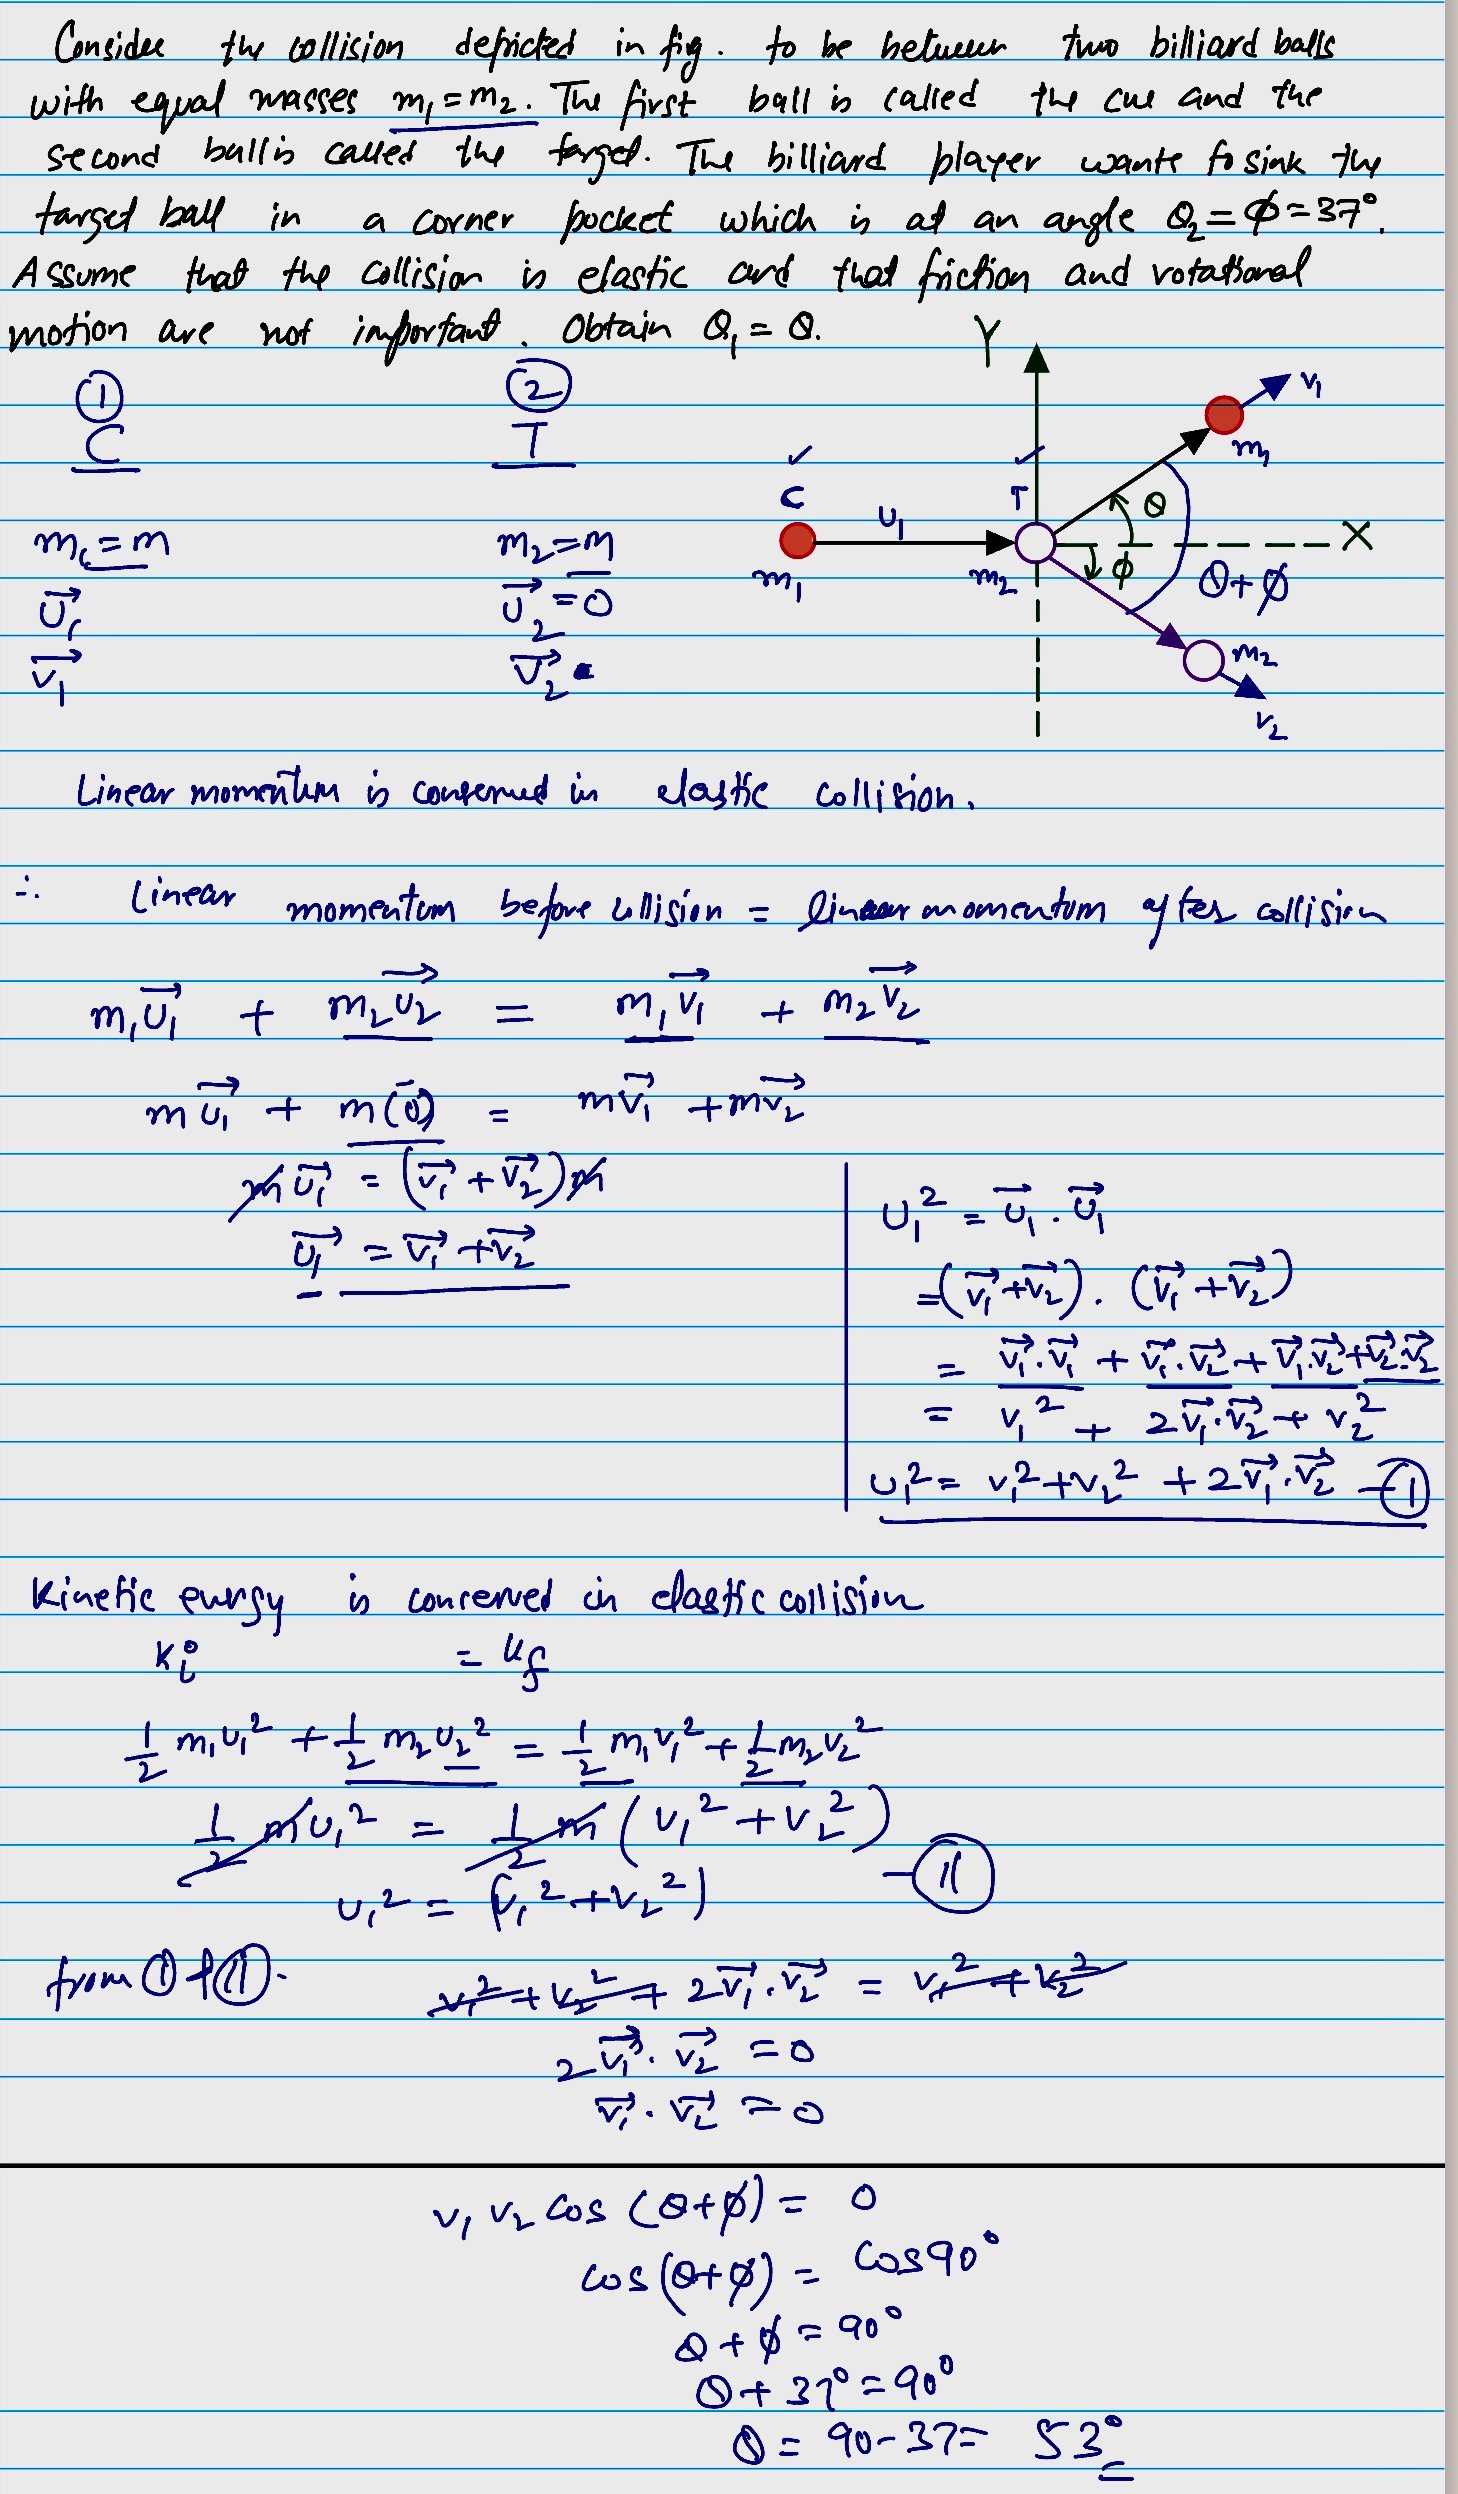 Consider the collision depicted in fig. to be between two billiard balls
with equal masses m₁ = m₂. The first ball is called the cue and the
second ball is called the target. The billiard player wants to sink the
target ball in a corner pocket which is at an angle θ₂ = ϕ = 37°.
Assume that the collision is elastic and that friction and rotational
motion are not important. Obtain θ₁ = θ.
① ②
C T
m₁ = m m₂ = m
u₁⃗ u₂⃗ = 0
v₁⃗ v₂⃗
Y
v₁
m₁
C T
u₁ θ X
m₁ m₂ ϕ θ+ϕ
m₂
v₂
Linear momentum is conserved in elastic collision.
∴ Linear momentum before collision = linear momentum after collision
m₁u₁⃗ + m₂u₂⃗ = m₁v₁⃗ + m₂v₂⃗
mu₁⃗ + m(0) = mv₁⃗ + mv₂⃗
mu₁⃗ = (v₁⃗ + v₂⃗)m
u₁⃗ = v₁⃗ + v₂⃗
u₁² = u₁⃗ . u₁⃗
= (v₁⃗ + v₂⃗) . (v₁⃗ + v₂⃗)
= v₁⃗.v₁⃗ + v₁⃗.v₂⃗ + v₁⃗.v₂⃗ + v₂⃗.v₂⃗
= v₁² + 2v₁⃗.v₂⃗ + v₂²
u₁² = v₁² + v₂² + 2v₁⃗.v₂⃗ –①
Kinetic energy is conserved in elastic collision
Ki = Kf
1/2 m₁u₁² + 1/2 m₂u₂² = 1/2 m₁v₁² + 1/2 m₂v₂²
1/2 mu₁² = 1/2 m (v₁² + v₂²)
u₁² = (v₁² + v₂²) –Ⅱ
from ① & Ⅱ. v₁² + v₂² + 2v₁⃗.v₂⃗ = v₁² + v₂²
2v₁⃗.v₂⃗ = 0
v₁⃗.v₂⃗ = 0
v₁ v₂ cos (θ+ϕ) = 0
cos(θ+ϕ) = cos90°
θ + ϕ = 90°
θ + 37° = 90°
θ = 90 - 37 = 53°